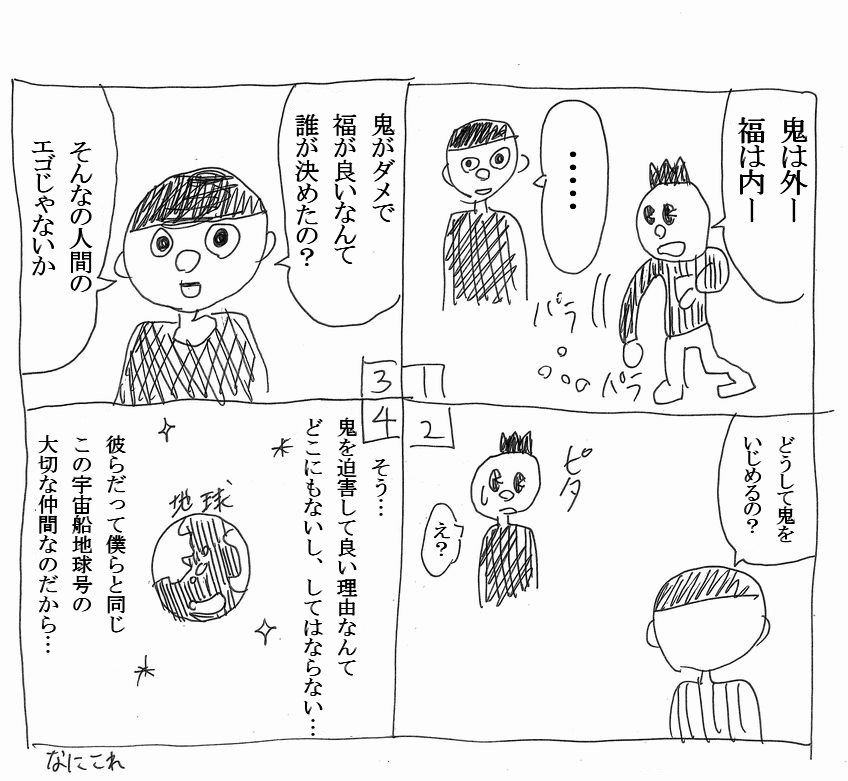 鬼は外ー
福は内ー
・・・・
パラ
パラ
1
2
どうして鬼を
いじめるの？
ピタ
え？
3
鬼がダメで
福が良いなんて
誰が決めたの？
そんなの人間の
エゴじゃないか
4
そう…
鬼を迫害して良い理由なんて
どこにもないし、してはならない…
地球
彼らだって僕らと同じ
この宇宙船地球号の
大切な仲間なのだから…
なにこれ